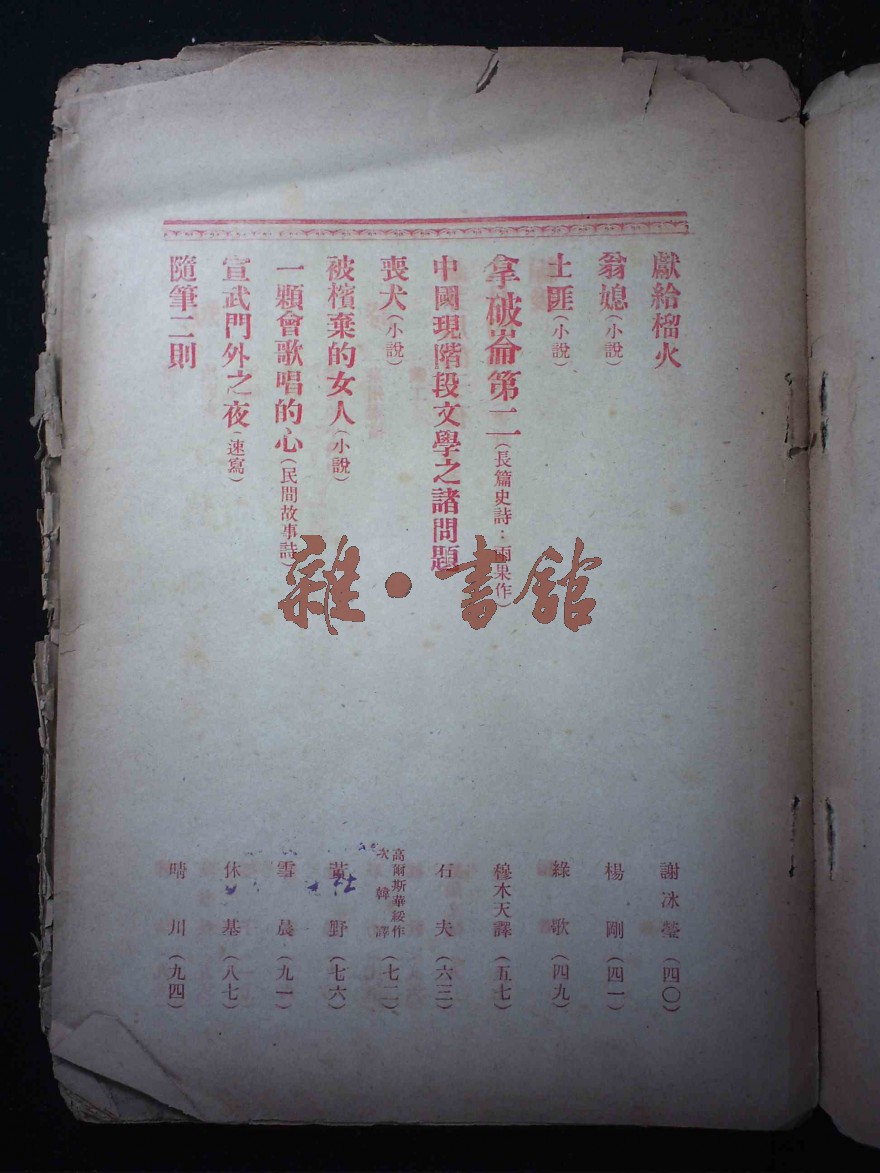 獻給榴火 謝冰瑩(四〇)
翁媳(小說) 楊剛(四一)
土匪(小說) 綠歌(四九)
拿破崙第二(長篇史詩:雨果作) 穆木天譯(五七)
中國現階段文學之諸問題 石夫(六三)
喪犬(小說) 高爾斯華綏作
次韓譯(七二)
被檳棄的女人(小說) 野(七六)
一顆會歌唱的心(民間故事詩) 雪晨(九一)
宣武門外之夜(速寫) 休基(八七)
隨筆二則 晴川(九四)
雜·書館